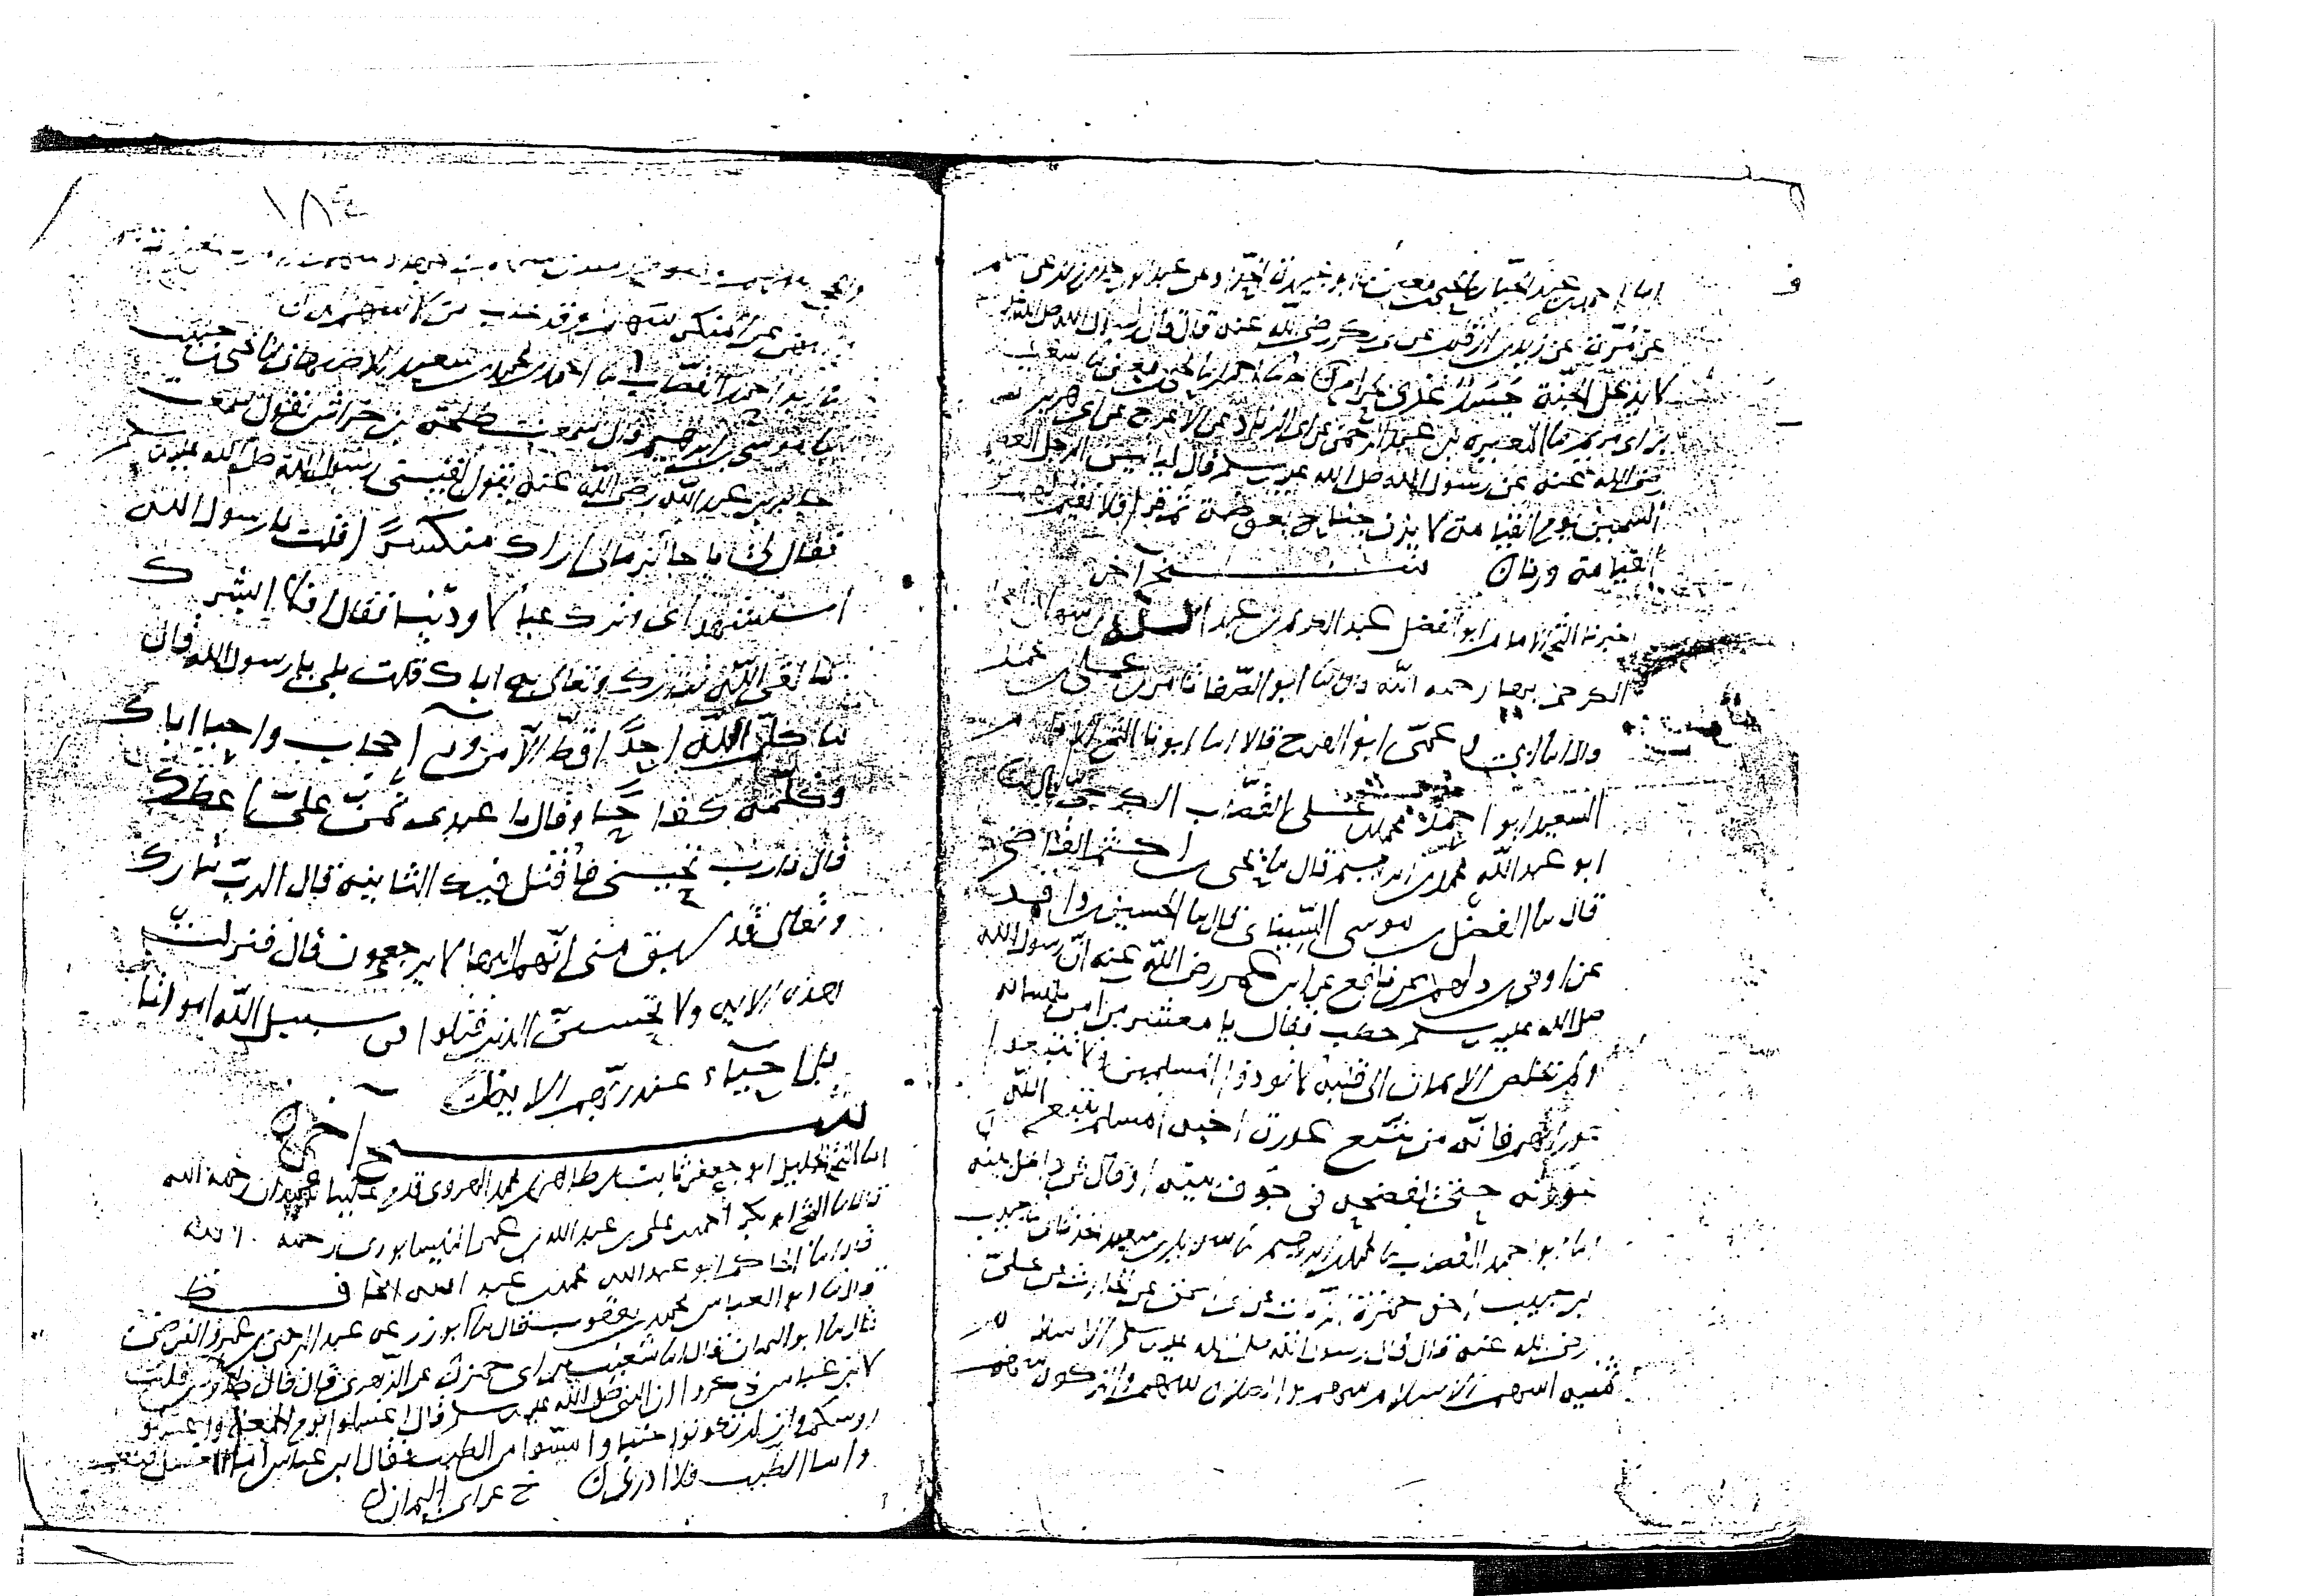 عن مرة عن زيد بن ارقم عن ابى بكر رضى الله عنه قال قال رسول الله صلى الله
لا يدخل الجنة جسد غذى بحرام
بن ابى مريم نا المغيرة بن عبد الرحمن عن ابى الزناد عن الاعرج عن ابى هريرة
رضى الله عنه عن رسول الله صلى الله عليه وسلم قال لياتين الرجل
السمين يوم القيامة لا يزن جناح بعوضة ثم قرا فلا نقيم لهم يوم
القيامة وزنا شيخ آخر
اخبرنا الشيخ الامام ابو الفضل عبد الكريم بن
الكرجى بها رحمه الله
وعمى ابو الفرج قالا انا ابونا الشيخ الامام
السعيد ابو احمد محمد بن على القصاب الكرجى
ابو عبد الله محمد بن ابراهيم قال نا يحيى بن اكثم القاضى
قال نا الفضل بن موسى السينانى قال نا الحسين بن واقد
عن اوفى بن دلهم عن نافع عن ابن عمر رضى الله عنه ان رسول الله
صلى الله عليه وسلم خطب فقال يا معشر من امن بلسانه
ولم تخلص الايمان الى قلبه لا تؤذوا المسلمين ولا تتبعوا
عوراتهم فانه من تتبع عورة اخيه المسلم تتبع الله
عورته حتى يفضحه فى جوف بيته او قال فى داخل بيته
انا ابو احمد القصاب نا محمد بن ابراهيم نا
بن حبيب اخى حمزة الزيات عن ابى اسحق عن الحارث عن على
رضى الله عنه قال قال رسول الله صلى الله عليه وسلم الاسلام
ثمنية اسهم الاسلام سهم والصلاة سهم والزكوة سهم
١٨٤
عن المنكر سهم وقد خاب من لا سهم له
نا ابو احمد القصاب نا احمد بن محمد بن سعيد الاصبهانى نا يحيى بن حبيب
نا موسى بن ابراهيم قال سمعت طلحة بن خراش يقول سمعت
جابر بن عبد الله رضى الله عنه يقول لقينى رسول الله صلى الله عليه وسلم
فقال لى يا جابر مالى اراك منكسرا قلت يا رسول الله
استشهد ابى وترك عيالا ودينا فقال افلا ابشرك
بما لقى الله تبارك وتعالى به اباك قلت بلى يا رسول الله قال
ما كلم الله احدا قط الا من ورآ حجاب واحيا اباك
وكلمه كفاحا وقال يا عبدى تمن على اعطك
قال يارب تحيينى فاقتل فيك الثانية قال الرب تبارك
وتعالى قد سبق منى انهم اليها لا يرجعون قال فنزلت
هذه الاية ولا تحسبن الذين قتلوا فى سبيل الله امواتا
بل احياء عند ربهم الاية
شيخ آخر
انا الشيخ الجليل ابو جعفر ثابت بن طاهر بن محمد الهروى قدم علينا همدان رحمه الله
قال انا الشيخ ابو بكر احمد بن على بن عبد الله بن عمر النيسابورى رحمه الله
قال انا الحاكم ابو عبد الله محمد بن عبد الله الحافظ
قال نا ابو العباس محمد بن يعقوب قال نا ابو زرعة عبد الرحمن بن عمرو النصرى
قال نا ابو اليمان قال انا شعيب بن ابى حمزة عن الزهرى قال قال طاوس قلت
لابن عباس ذكروا ان النبى صلى الله عليه وسلم قال اغتسلوا يوم الجمعة واغسلوا
روسكم وان لم تكونوا جنبا واصيبوا من الطيب فقال ابن عباس اما الغسل فنعم
واما الطيب فلا ادرى خ عن ابى اليمان